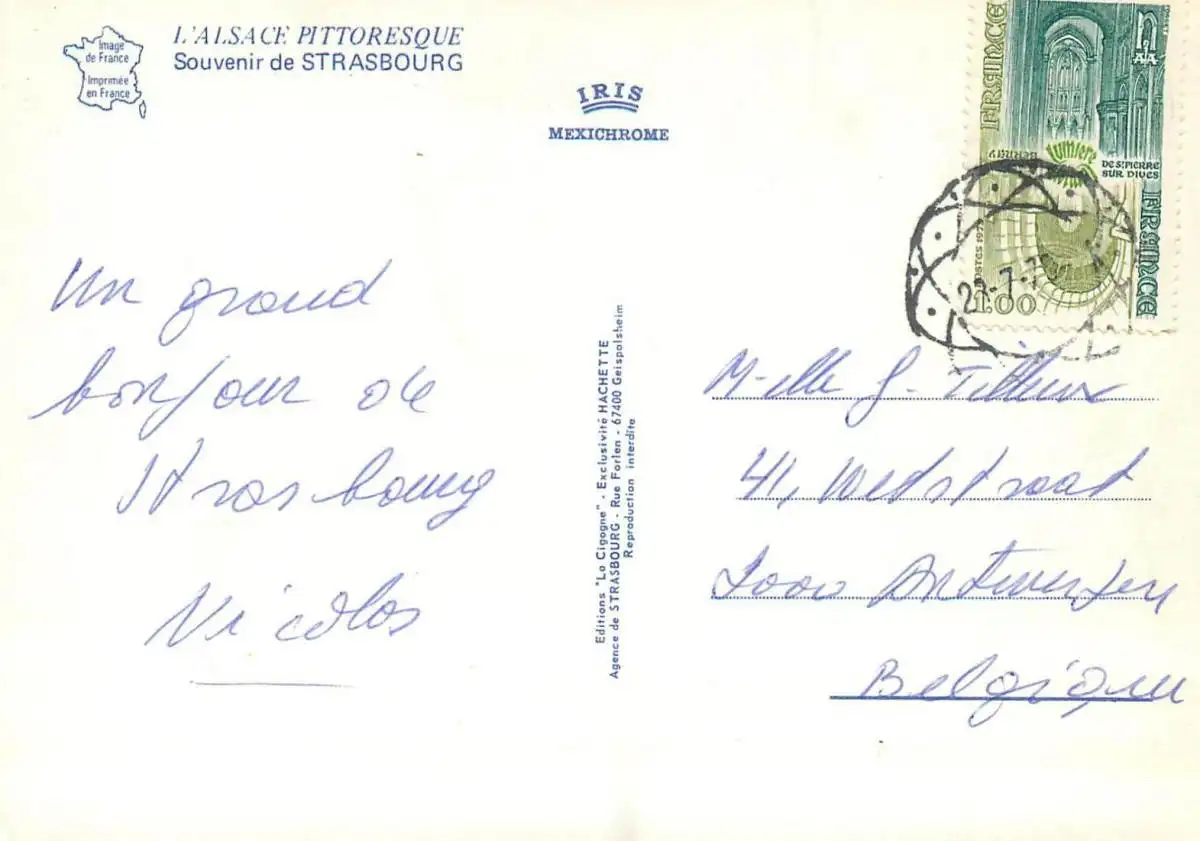 Image
de France
Imprimée
en France
L'ALSACE PITTORESQUE
Souvenir de STRASBOURG
IRIS
MEXICHROME
FRANCE
lumiere
DE St PIERRE
SUR DIVES
FRANCE
POSTES
1.00
Un grand
bonjour de
Strasbourg
Nicolas
Editions "La Cigogne" - Exclusivité HACHETTE
Agence de STRASBOURG - Rue Forlen - 67400 Geispolsheim
Reproduction interdite
M-elle G-
41, Wetstraat
2000 Antwerpen
Belgique